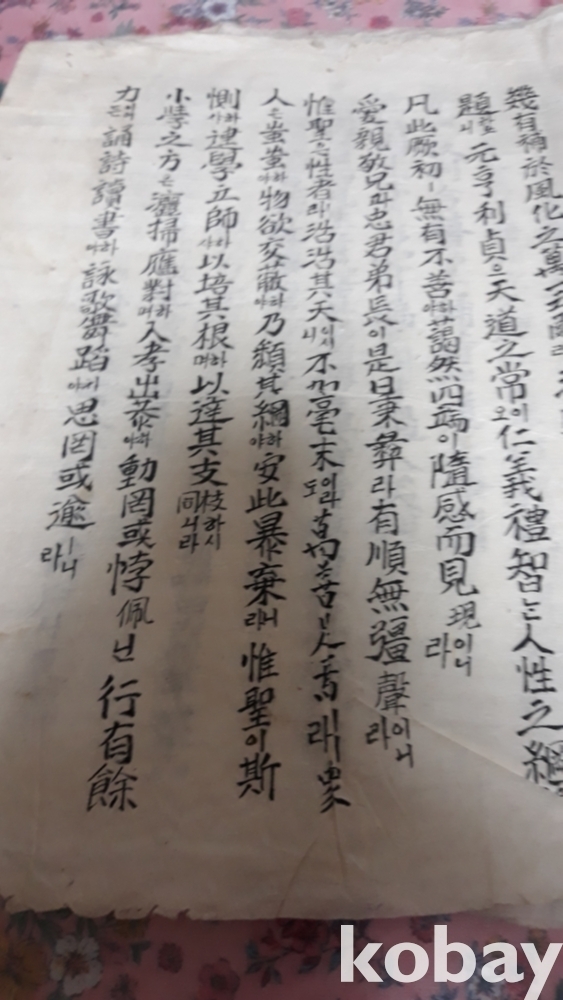 幾有補於風化之萬一云爾라
題 元亨利貞은天道之常이오仁義禮智는人性之綱
凡此厥初ㅣ無有不善하야藹然四端이隨感而見現이니라
愛親敬兄과忠君弟長이是曰秉彛라有順無彊聲이니라
惟聖은性者라浩浩其天이시니不加毫末이라도萬善足焉ㅣ니라衆
人은蚩蚩하야物欲交蔽하야乃頹其綱하야安此暴棄라니惟聖이斯
惻하사建學立師하사以培其根하며以達其支枝同하시니라
小學之方은灑掃應對하며入孝出恭하야動罔或悖佩닌行有餘
力이든誦詩讀書하야詠歌舞蹈하야思罔或逾ㅣ니라
kobay